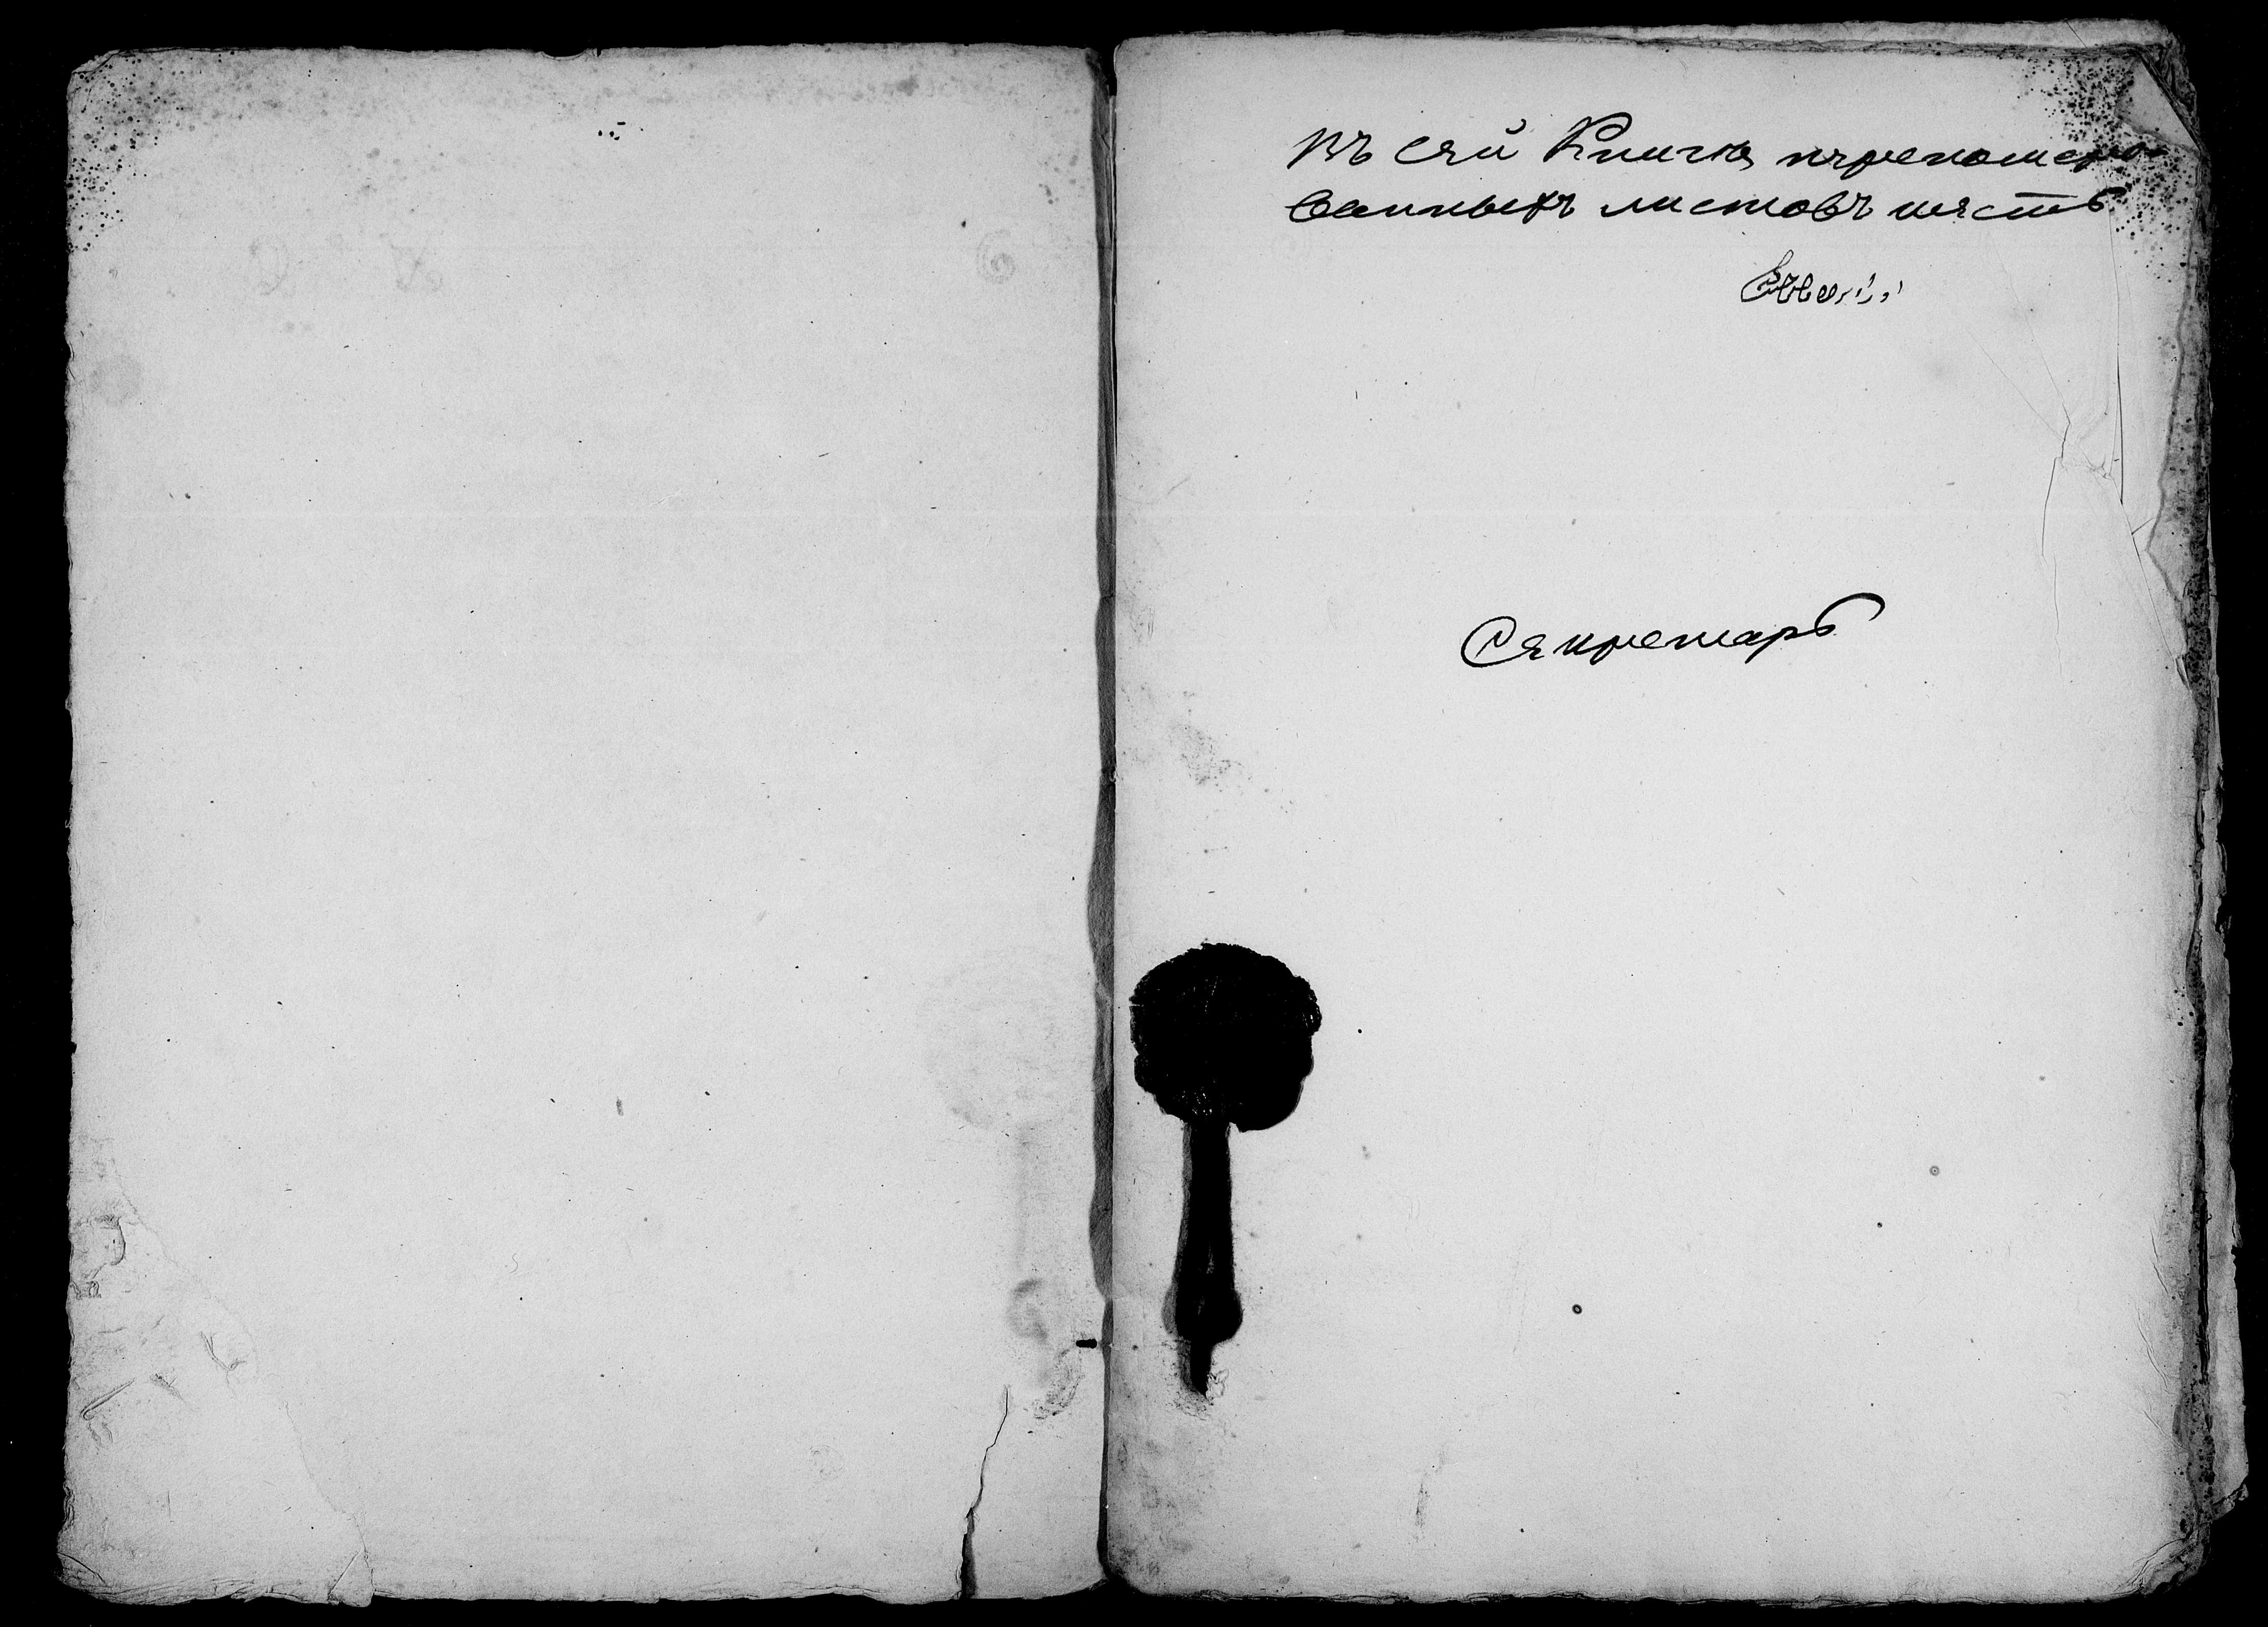 Въ сей Книгѣ перенomеро-
ванныхъ листовъ шесть
Секретарь